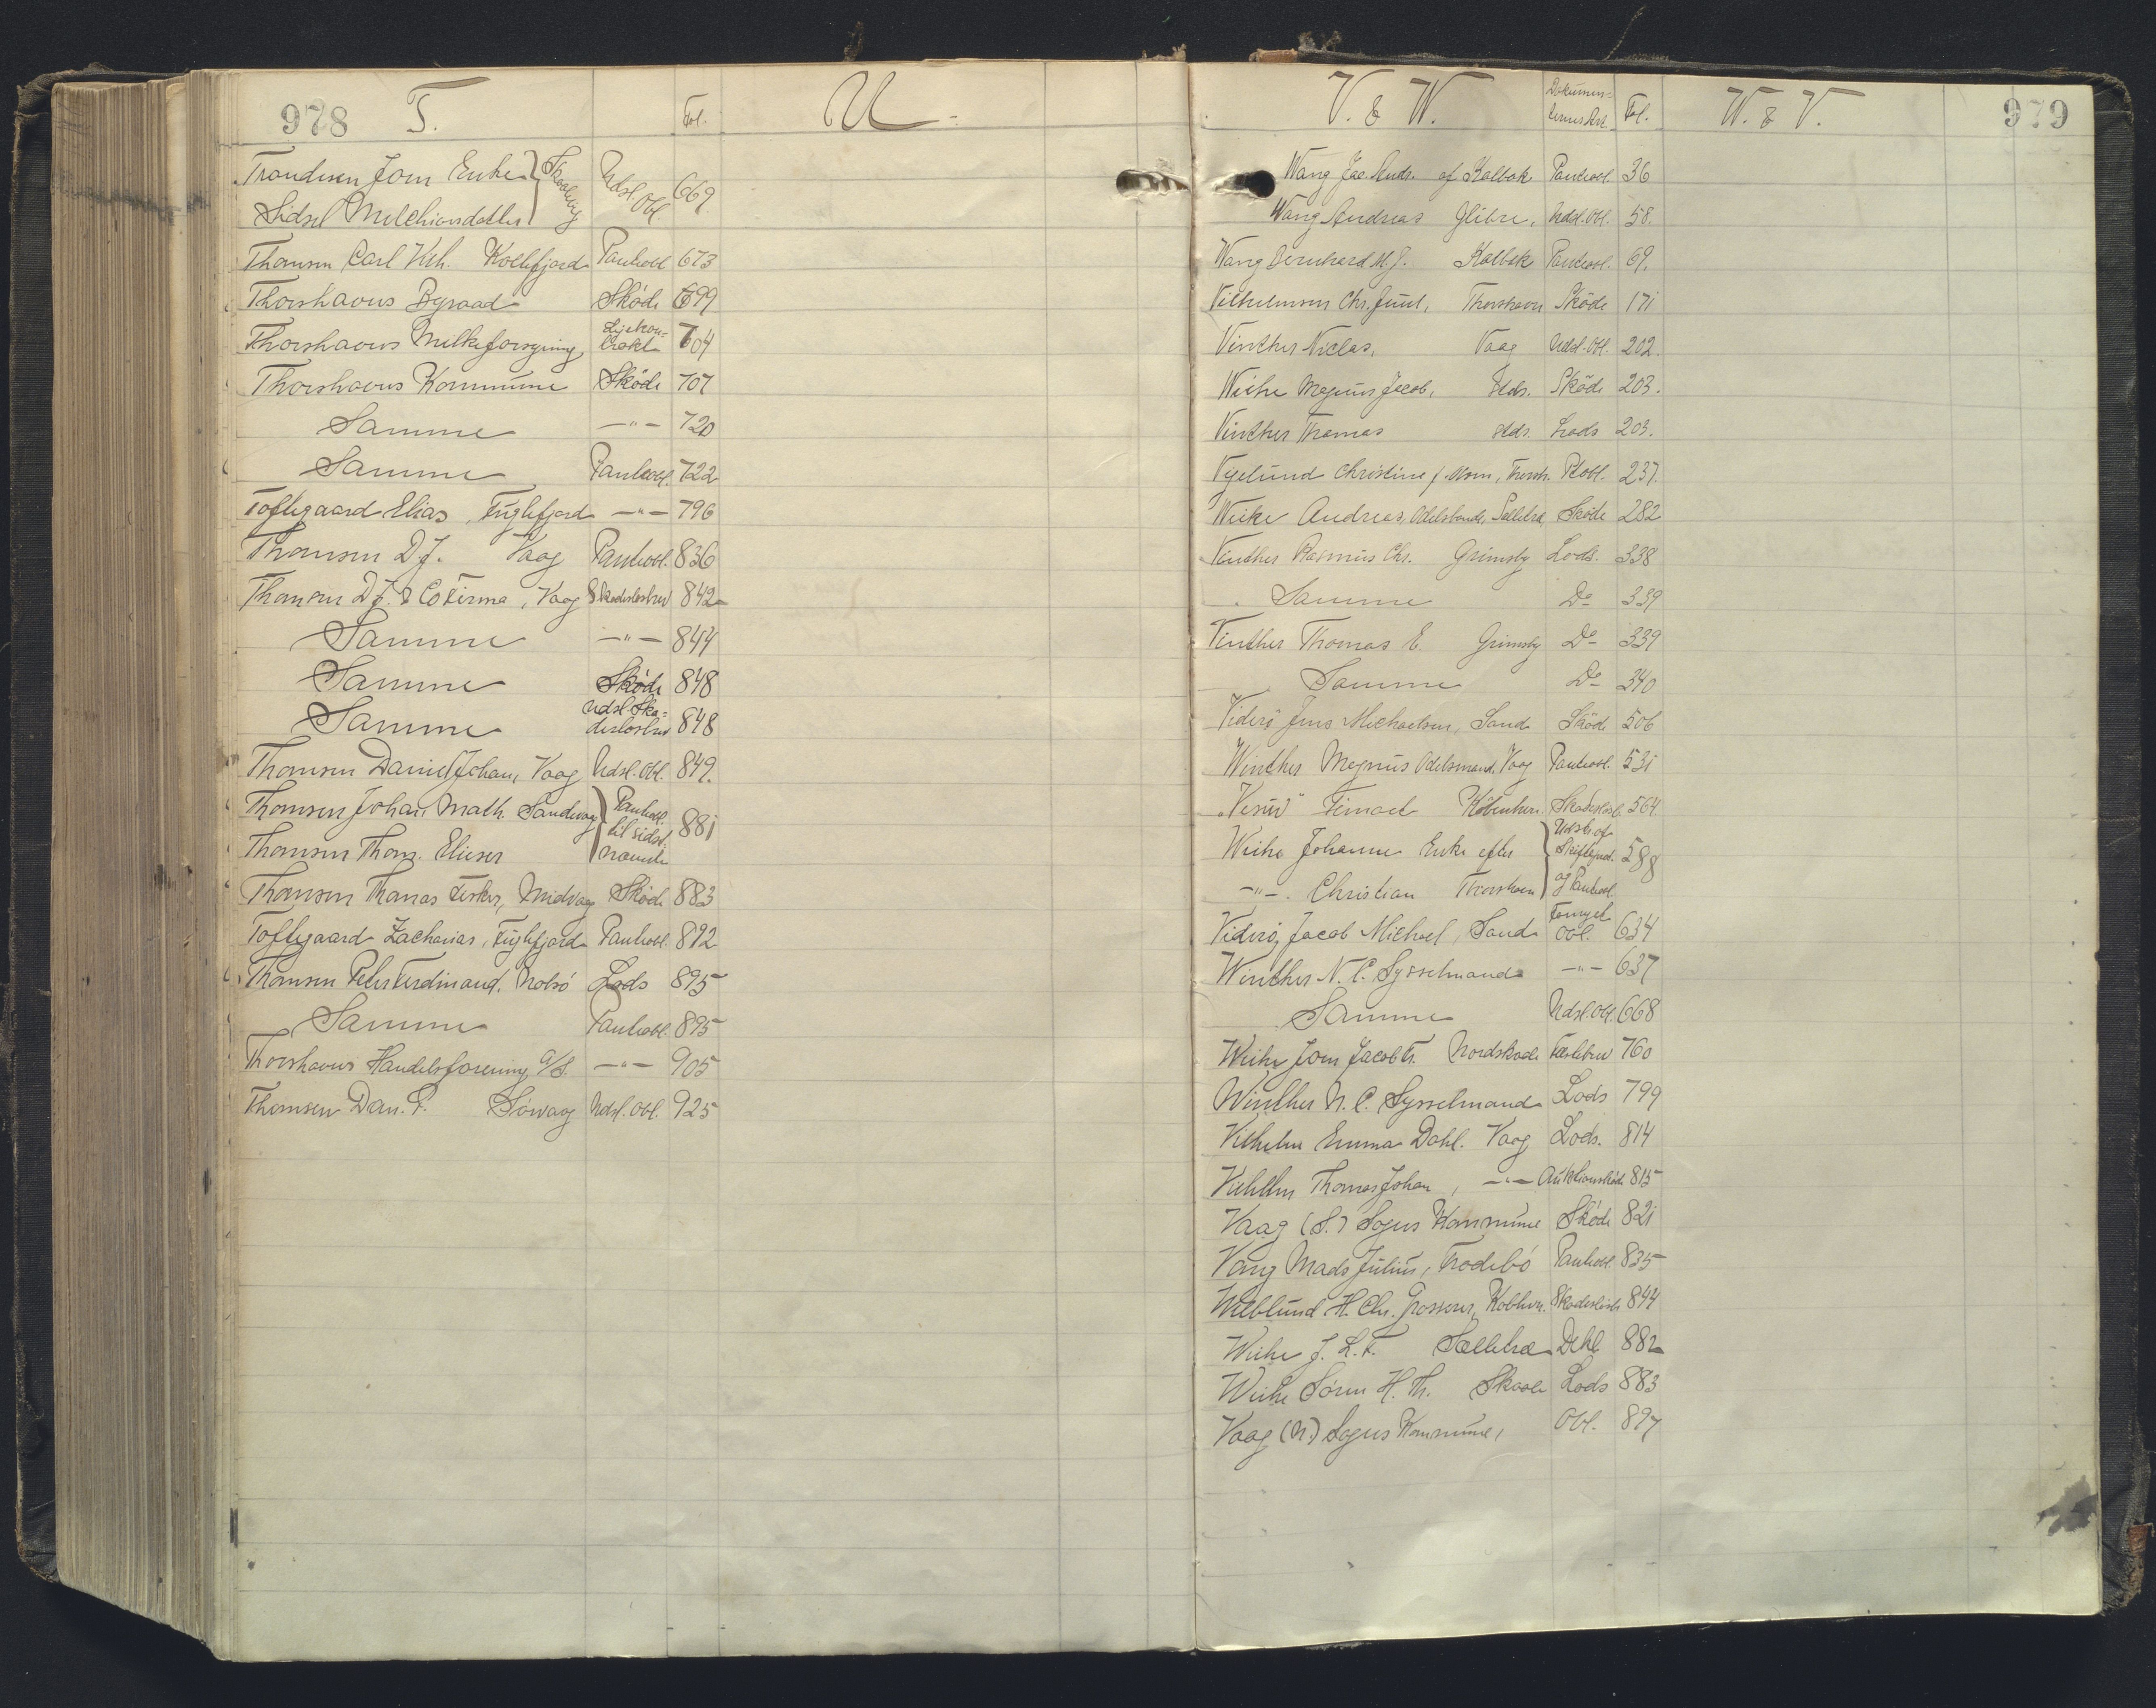 978 T. Fol. U
Trondesen Joen Enke } Skaalevig Udsl. Obl. 669.
Sidsel Melchiorsdatter
Thomsen Carl Vilh. Kollefjord Panteobl. 673
Thorshavns Byraad Sköde 699
Thorshavns Mælkeforsyning Lejekon=trakt 704
Thorshavns Kommune Sköde 707
Samme —"— 720
Samme Panteobl. 722
Toftegaard Elias, Fuglefjord —"— 796
Thomsen D. J. Vaag Panteobl. 836
Thomsen D. J. & Co Firma, Vaag Skadeslösbrev 842
Samme —"— 844
Samme Sköde 848
Samme Udsl. Ska=deslosbrev 848
Thomsen Daniel Johan, Vaag Udsl. Obl. 849.
Thomsen Johan Math. Sandevaag } Panteobl. til sidst. nævnte 881
Thomsen Thom. Elieser
Thomsen Thomas Fisker, Midvaag Sköde 883
Toftegaard Zacharias, Fuglefjord Panteobl. 892
Thomsen Peter Ferdinand, Nolsö Lods 895
Samme Panteobl. 895
Thorshavns Handelsforening A/S. —"— 905
Thomsen Dan. P. Sörvaag Udsl. Obl. 925
V. & W. Dokumen=ternes Art Fol. W. & V. 979
Wang Jac Andr. af Kalbak Panteobl. 36
Wang Andreas Glibre, Udsl. Obl. 58.
Wang Bernhard M. J. Kalbak Panteobl. 69.
Vilhelmsen Chr. Juul, Thorshavn Sköde 171
Vinther Niclas, Vaag Udsl. Obl. 202.
Weihe Magnus Jacob, stds. Sköde 203.
Vinther Thomas stds. Lods 203.
Vigelund Christine f. Mom, Thorsh. Ptobl. 237.
Weihe Andreas, Odelsbonde, Selletræ Sköde 282
Vinther Rasmus Chr. Grimsby Lods. 338
Samme Do 339
Vinther Thomas E. Grimsby Do 339
Samme Do 340
Viderö Jens Michaelsen, Sand Sköde 506
Winther Magnus Odelsmand, Vaag Panteobl. 531
„Vesuv" Firmaet Köbenhavn. Skadeslösb. 564.
Weihe Johanne Enke efter } Udskr. af Skiftepr. og Panteobl. 588
—"— Christian Thorshavn
Viderö, Jacob Michael, Sand Fornyet Obl. 634
Winther N. C. Sysselmand —"— 637
Samme Udsl. Obl. 668
Weihe Joen Jacob Fr. Nordskaale Fæstebrev 760
Winther N. C. Sysselmand Lods 799
Vilhelm Emma Dahl. Vaag Lods. 814
Vilhelm Thomas Johan, —"— Auktionsskøde 815
Vaag (S.) Sogns Kommune Sköde 821
Vang Mads Julius, Trodebö Panteobl. 835
Wieblund H. Chr. Grosserer, Kobhvn. Skadeslösb. 844
Weihe J. L. F. Selletræ Dekl. 882
Weihe Sören H. Th. Skaale Lods 883
Vaag (N.) Sogns Kommune, Obl. 897